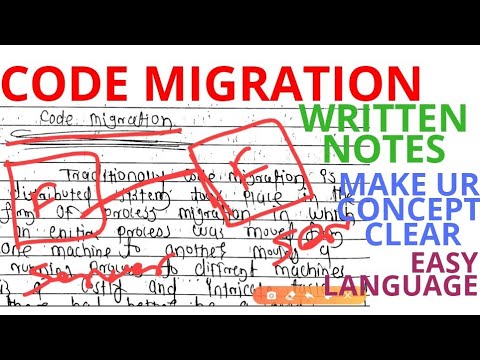 CODE MIGRATION
WRITTEN
NOTES
MAKE UR
CONCEPT
CLEAR
EASY
LANGUAGE
Code migration
Traditionally code migration is
distributed system took place in the
form of process migration in which
an entire process was moved from
one machine to another moving a
running process to different machines
is a costly and intricate